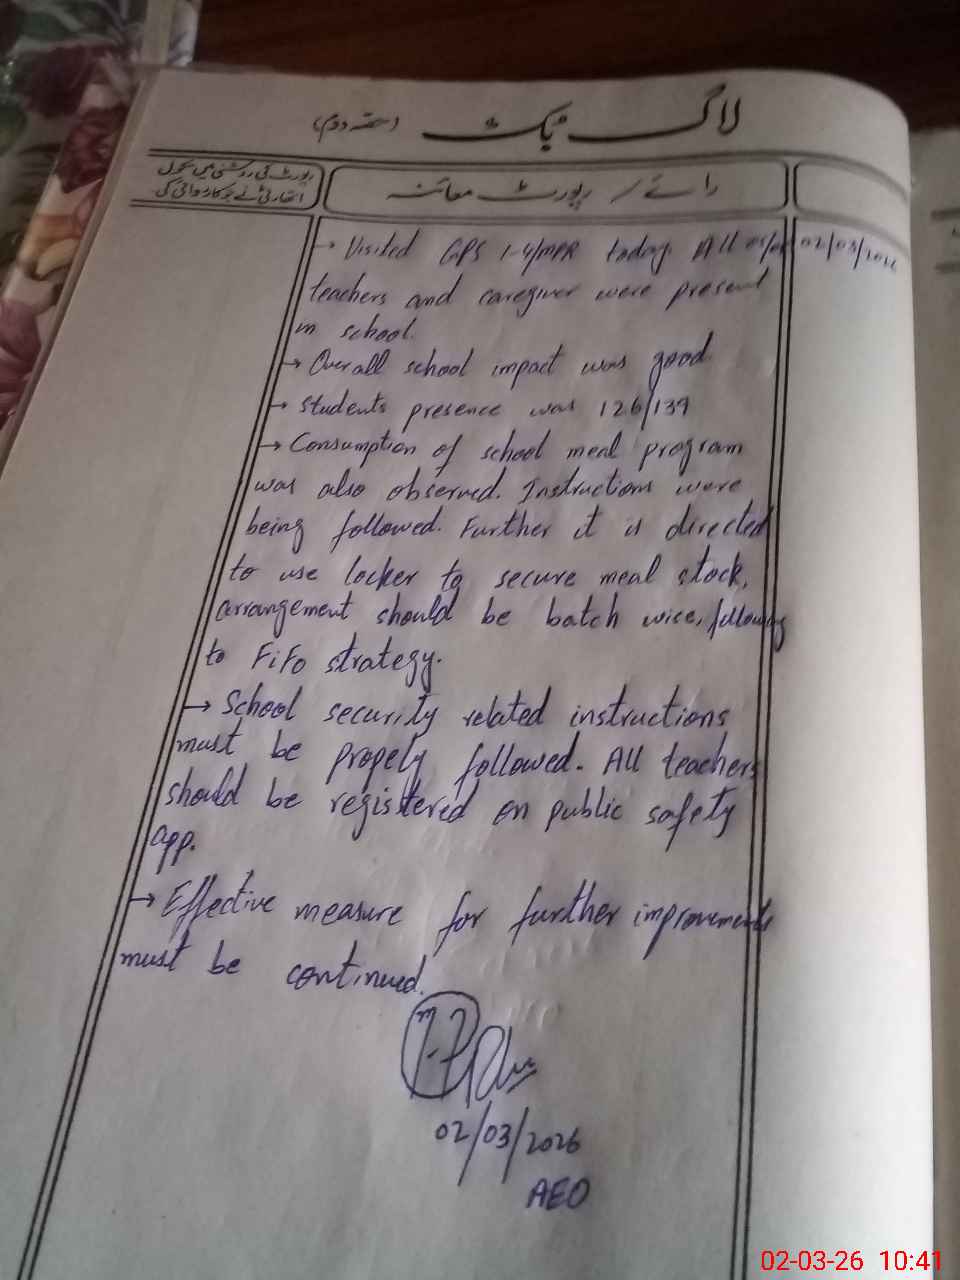 لاگ بک (حصہ دوم)
رپورٹ کی روشنی میں سکول
اتھارٹی نے جو کارروائی کی
رائے / رپورٹ معائنہ
→ Visited GPS 1-4/MPR today. All 05/05
02/03/2026
teachers and caregiver were present
in school.
→ Overall school impact was good
→ Students presence was 126/139
→ Consumption of school meal program
was also observed. Instructions were
being followed. Further it is directed
to use locker to secure meal stock,
arrangement should be batch wise, following
to FiFo strategy.
→ School security related instructions
must be propely followed. All teachers
should be registered on public safety
app.
→ Effective measure for further improvements
must be continued.
02/03/2026
AEO
02-03-26 10:41